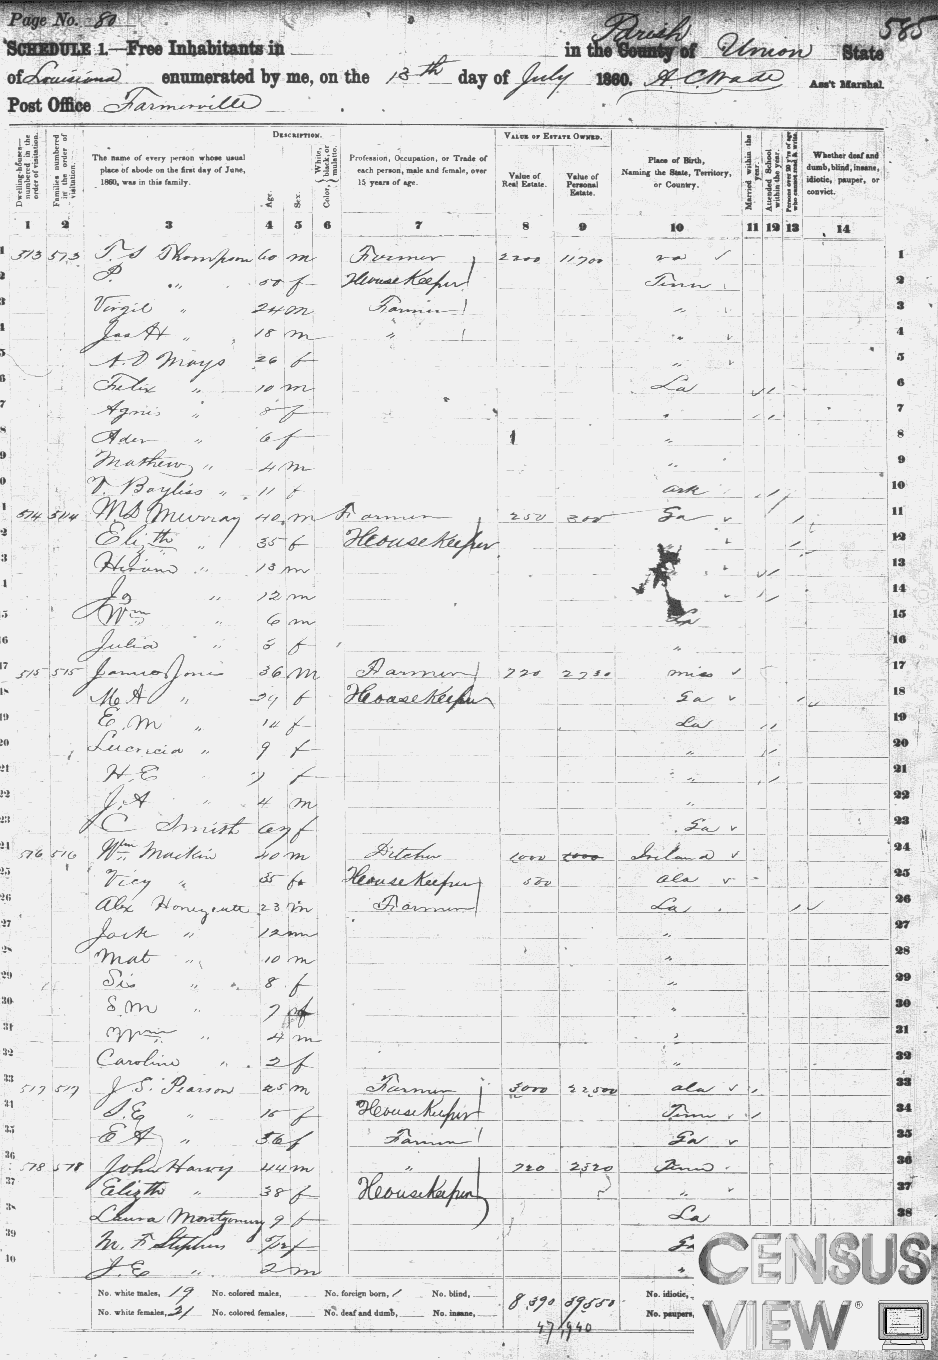 Page No. 80
585
SCHEDULE 1.—Free Inhabitants in in the County of Parish Union State
of Louisiana enumerated by me, on the 13th day of July 1860. A. C. Wade Ass't Marshal.
Post Office Farmerville
Dwelling-houses—numbered in the order of visitation.
Families numbered in the order of visitation.
The name of every person whose usual place of abode on the first day of June, 1860, was in this family.
DESCRIPTION.
Age.
Sex.
Color, White, black, or mulatto.
Profession, Occupation, or Trade of each person, male and female, over 15 years of age.
VALUE OF ESTATE OWNED.
Value of Real Estate.
Value of Personal Estate.
Place of Birth, Naming the State, Territory, or Country.
Married within the year.
Attended School within the year.
Persons over 20 y'rs of age who cannot read & write.
Whether deaf and dumb, blind, insane, idiotic, pauper, or convict.
1 2 3 4 5 6 7 8 9 10 11 12 13 14
1 573 573 T. S Thompson 60 m Farmer 2200 11700 va 1
2 P. " 50 f HouseKeeper Tenn 2
3 Virgil " 24 m Farmer " 3
4 Jas H " 18 m " " 4
5 A. D Mays 26 f " 5
6 Felix " 10 m La 6
7 Agnis " 8 f " 7
8 Ader " 6 f " 8
9 Mathew " 4 m " 9
10 V. Bayliss " 11 f Ark 10
11 514 514 M S Murray 40 m Farmer 250 300 Ga 11
12 Elizth " 35 f HouseKeeper " 12
13 Hiram " 13 m " 13
14 Jo " 12 m " 14
15 Wm " 6 m La 15
16 Julia " 5 f " 16
17 515 515 James Jones 36 m Farmer 720 2730 miss 17
18 M. A " 29 f HouseKeeper Ga 18
19 E. M " 14 f La 19
20 Lucricia " 9 f " 20
21 H. E 7 f " 21
22 J. A " 4 m " 22
23 C Smith 67 f Ga 23
24 516 516 Wm Mackin 40 m Ditcher 1000 1000 Ireland 24
25 Vicy " 35 f HouseKeeper 500 Ala 25
26 Alex Honeycutt 23 m Farmer La 26
27 Jack " 12 m 27
28 Mat " 10 m " 28
29 Sis " 8 f " 29
30 S. M " 7 f " 30
31 Wm " 4 m " 31
32 Caroline " 2 f " 32
33 517 517 J S. Pearson 25 m Farmer 3000 22500 Ala 33
34 S. E " 15 f HouseKeeper Tenn 34
35 E A " 56 f Farmer Ga 35
36 578 578 John Harvy 44 m " 720 2520 Tenn 36
37 Elizth " 38 f HouseKeeper " 37
38 Laura Montgomery 9 f La 38
39 M. F Stephens f Ga
40 J. E " 2 m "
No. white males, 19 No. colored males, No. foreign born, 1 No. blind, 8 390 39,550 No. idiotic,
No. white females, 21 No. colored females, No. deaf and dumb, No. insane, No. paupers,
47,940
CENSUS
VIEW®